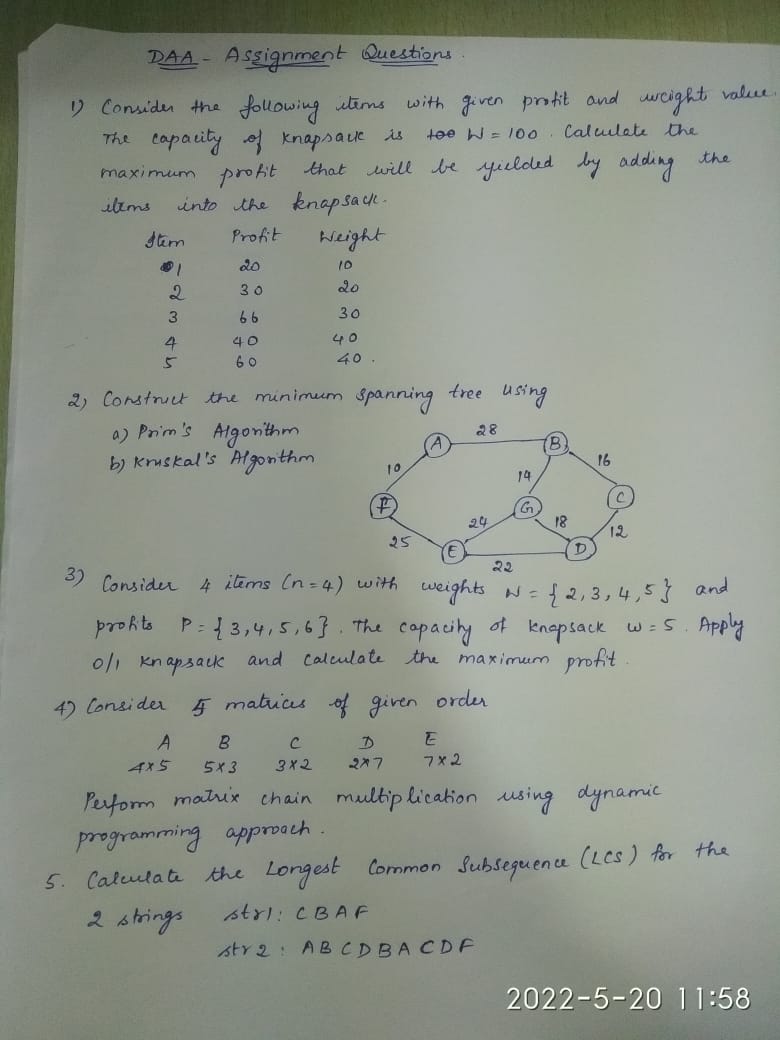 DAA - Assignment Questions.
1) Consider the following items with given profit and weight value.
The capacity of knapsack is W = 100. Calculate the
maximum profit that will be yielded by adding the
items into the knapsack.
Item Profit Weight
1 20 10
2 30 20
3 66 30
4 40 40
5 60 40.
2) Construct the minimum spanning tree using
a) Prim's Algorithm
b) Kruskal's Algorithm
A 28 B
10 14 16
F G C
24 18
25 12
E D
22
3) Consider 4 items (n=4) with weights W = {2,3,4,5} and
profits P = {3,4,5,6}. The capacity of knapsack w=5. Apply
0/1 knapsack and calculate the maximum profit.
4) Consider 5 matrices of given order
A B C D E
4x5 5x3 3x2 2x7 7x2
Perform matrix chain multiplication using dynamic
programming approach.
5. Calculate the Longest Common Subsequence (LCS) for the
2 strings str1: CBAF
str2: ABCDBACDF
2022-5-20 11:58